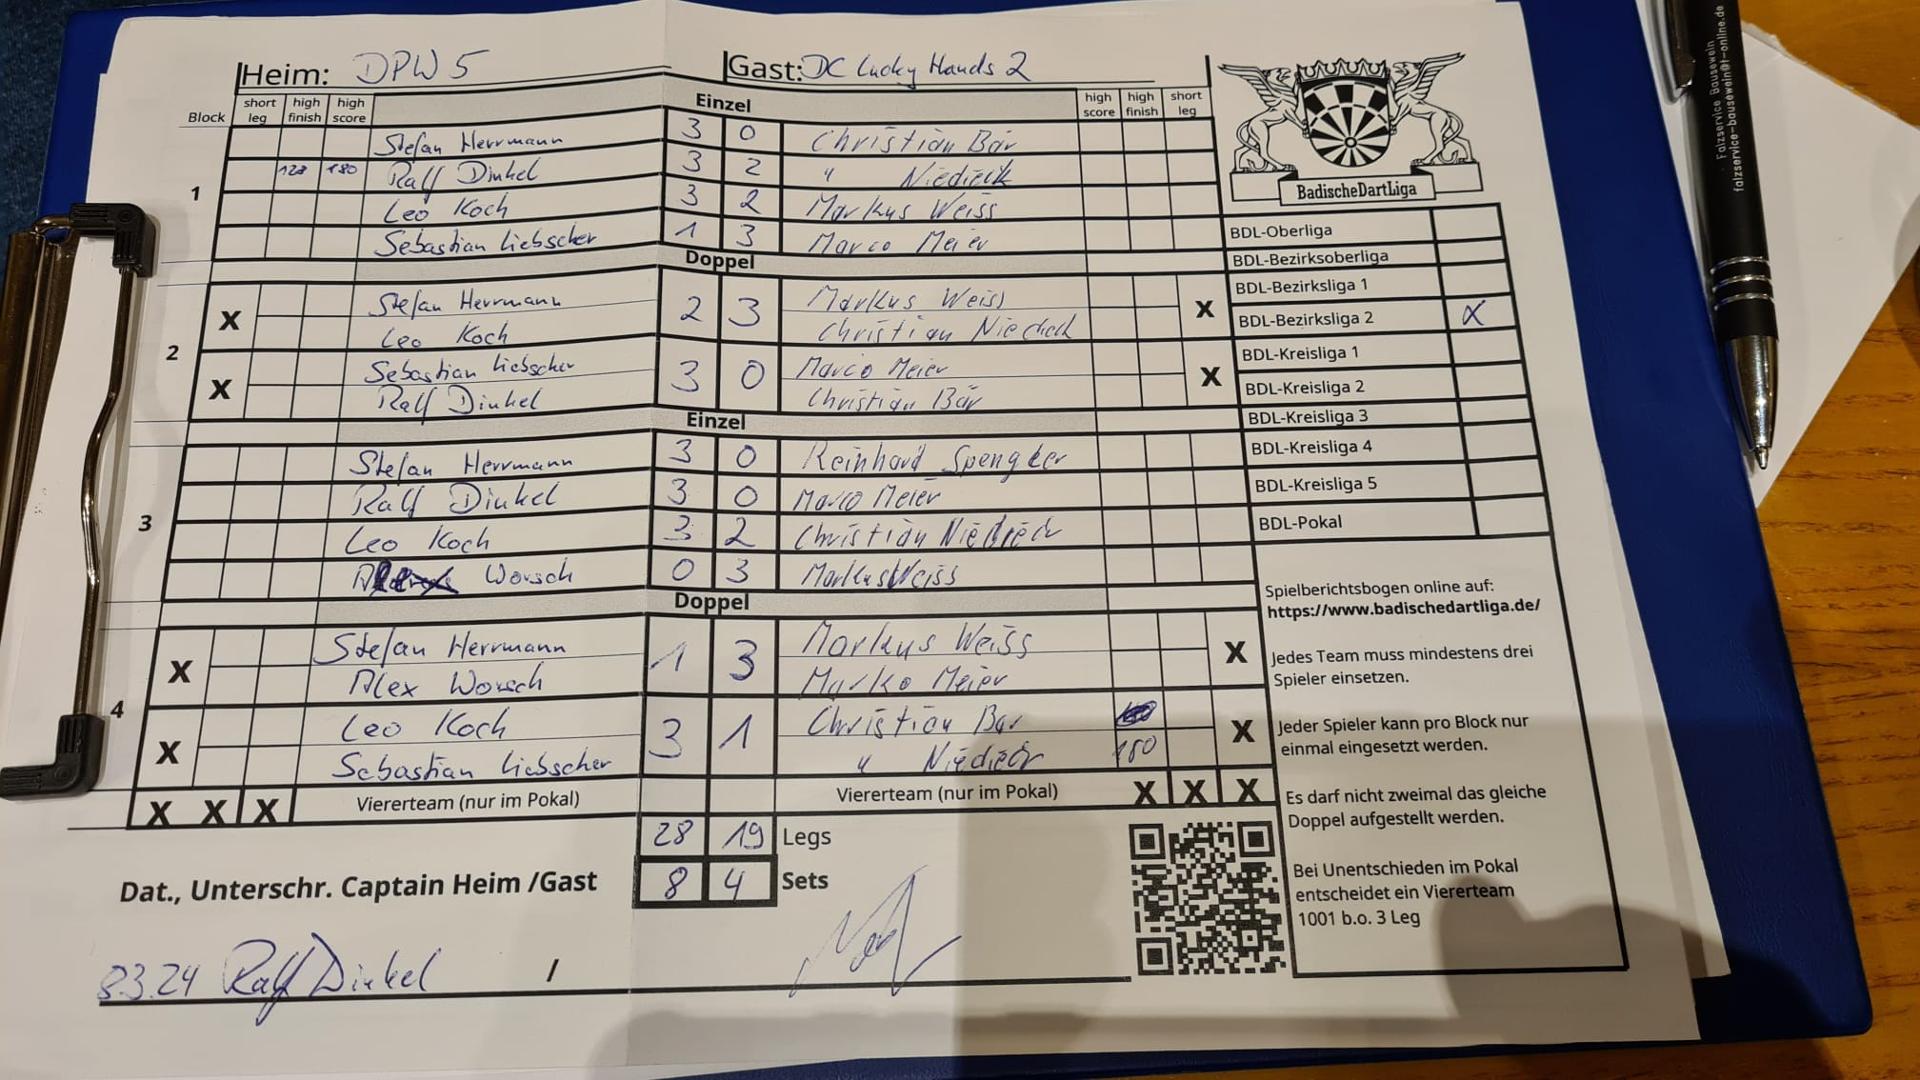 Heim: DPW 5 Gast: DC Lucky Hands 2
Block short leg high finish high score Einzel high score high finish short leg
1
Stefan Herrmann 3 0 Christian Bär
128 180 Ralf Dinkel 3 2 " Niedieck
Leo Koch 3 2 Markus Weiss
Sebastian Liebscher 1 3 Marco Meier
Doppel
2
X Stefan Herrmann 2 3 Markus Weiss X
Leo Koch Christian Niedieck
X Sebastian Liebscher 3 0 Marco Meier X
Ralf Dinkel Christian Bär
Einzel
3
Stefan Herrmann 3 0 Reinhard Spengler
Ralf Dinkel 3 0 Marco Meier
Leo Koch 3 2 Christian Niedieck
Worsch 0 3 Markus Weiss
Doppel
4
X Stefan Herrmann 1 3 Markus Weiss X
Alex Worsch Marko Meier
X Leo Koch 3 1 Christian Bär X
Sebastian Liebscher " Niedieck 180
X X X Viererteam (nur im Pokal) Viererteam (nur im Pokal) X X X
28 19 Legs
8 4 Sets
Dat., Unterschr. Captain Heim /Gast
8.3.24 Ralf Dinkel /
BadischeDartLiga
BDL-Oberliga
BDL-Bezirksoberliga
BDL-Bezirksliga 1
BDL-Bezirksliga 2 X
BDL-Kreisliga 1
BDL-Kreisliga 2
BDL-Kreisliga 3
BDL-Kreisliga 4
BDL-Kreisliga 5
BDL-Pokal
Spielberichtsbogen online auf:
https://www.badischedartliga.de/
Jedes Team muss mindestens drei
Spieler einsetzen.
Jeder Spieler kann pro Block nur
einmal eingesetzt werden.
Es darf nicht zweimal das gleiche
Doppel aufgestellt werden.
Bei Unentschieden im Pokal
entscheidet ein Viererteam
1001 b.o. 3 Leg
Falzservice Bausewein
falzservice-bausewein@t-online.de